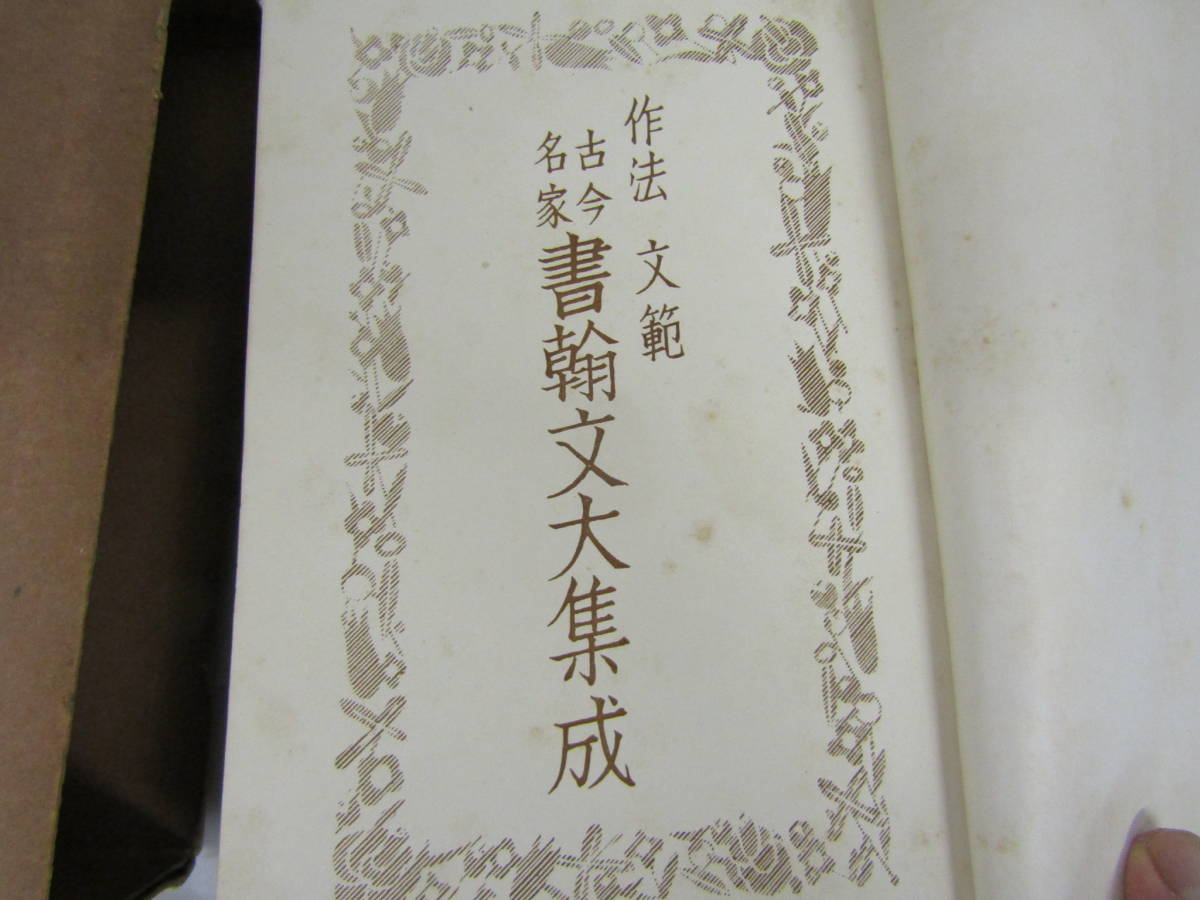 作法 文範
古今
名家
書翰文大集成